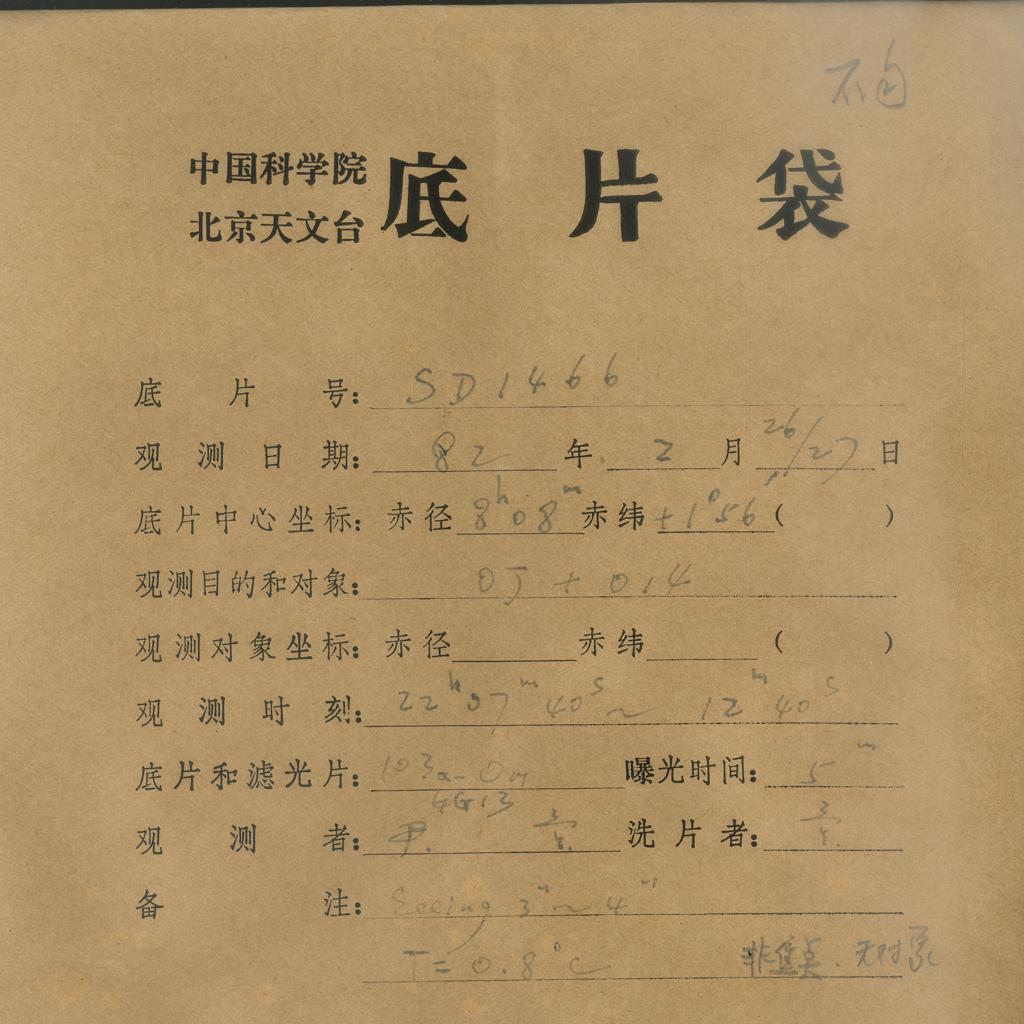 中国科学院
北京天文台
底片袋
底片号: SD1466
观测日期: 82年2月26/27日
底片中心坐标: 赤径 8h08m 赤纬 +1°56′ ( )
观测目的和对象: OJ+014
观测对象坐标: 赤径 赤纬 ( )
观测时刻: 22h07m40s ~ 12m40s
底片和滤光片: 103a-O 曝光时间: 5m
GG13
观测者: 尹. 洗片者:
备注: Seeing 3"~4"
T=0.8°C 无对象